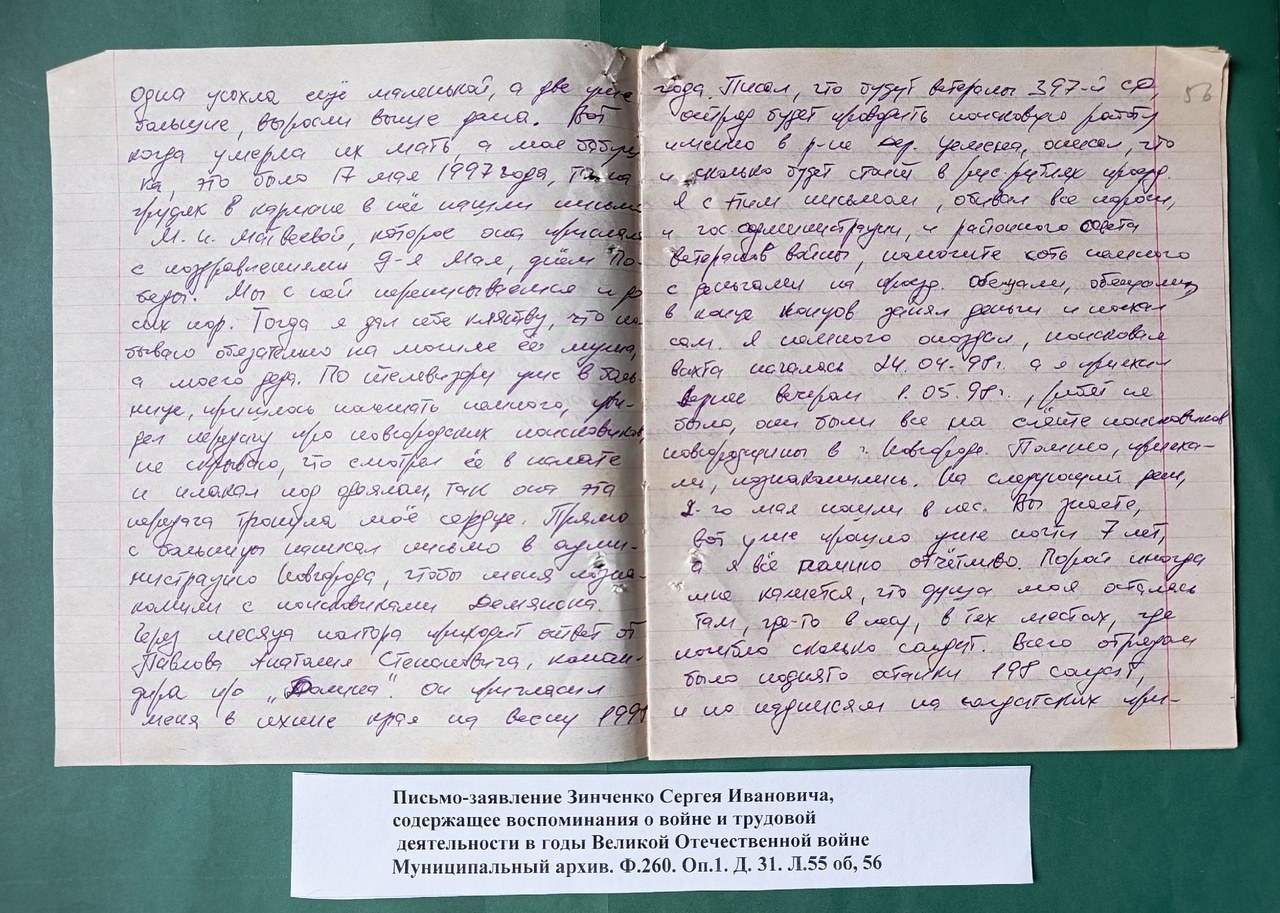 одна усохла ещё маленькой, а две уже
большие, выросли выше дома. Вот
когда умерла их мать, а моя бабуш
ка, это было 17 мая 1997 года, то на
грудях в кармане в неё нашли письмо
М. И. Матвеевой, которое она прислала
с поздравлениями 9-я Мая, днём По-
беды. Мы с ней переписываемся и до
сих пор. Тогда я дал себе клятву, что по
бываю обязательно на могиле её мужа,
а моего деда. По телевизору уже в боль-
нице, пришлось полежать немного, уви-
дел передачу про новгородских поисковиков,
не скрываю, что смотрел её в палате
и плакал под одеялом, так она эта
передача тронула моё сердце. Прямо
с больницы написал письмо в адми-
нистрацию Новгорода, чтобы меня позна-
комили с поисковиками Демянска.
Через месяца полтора приходит ответ от
Павлова Анатолия Степановича, коман-
дира п/о "Долина". Он пригласил
меня в ихние края на весну 1998
года. Писал, что будут ветераны 397-й СД,
отряд будет проводить поисковую работу
именно в р-не дер. описал, что
и сколько будет стоить в рус. рублях проезд.
Я с этим письмом, обивал все пороги,
и гос. администрации, и районного совета
ветеранов войны, помогите хоть немного
с деньгами на проезд. Обещали, обещали,
в конце концов занял деньги и поехал
сам. Я немного опоздал, поисковая
вахта началась 24.04.98г. а я приехал
вернее вечером 1.05.98г., ребят не
было, они были все на слёте поисковиков
новгородчины в г. Новгороде. Помню, приеха-
ли, познакомились. На следующий день,
2-го мая пошли в лес. Вы знаете,
вот уже прошло уже почти 7 лет,
а я всё помню отчётливо. Порой иногда
мне кажется, что душа моя осталась
там, где-то в лесу, в тех местах, где
погибло сколько солдат. Всего отрядом
было поднято останки 198 солдат,
и по надписям на солдатских при-
56
Письмо-заявление Зинченко Сергея Ивановича,
содержащее воспоминания о войне и трудовой
деятельности в годы Великой Отечественной войне
Муниципальный архив. Ф.260. Оп.1. Д. 31. Л.55 об, 56